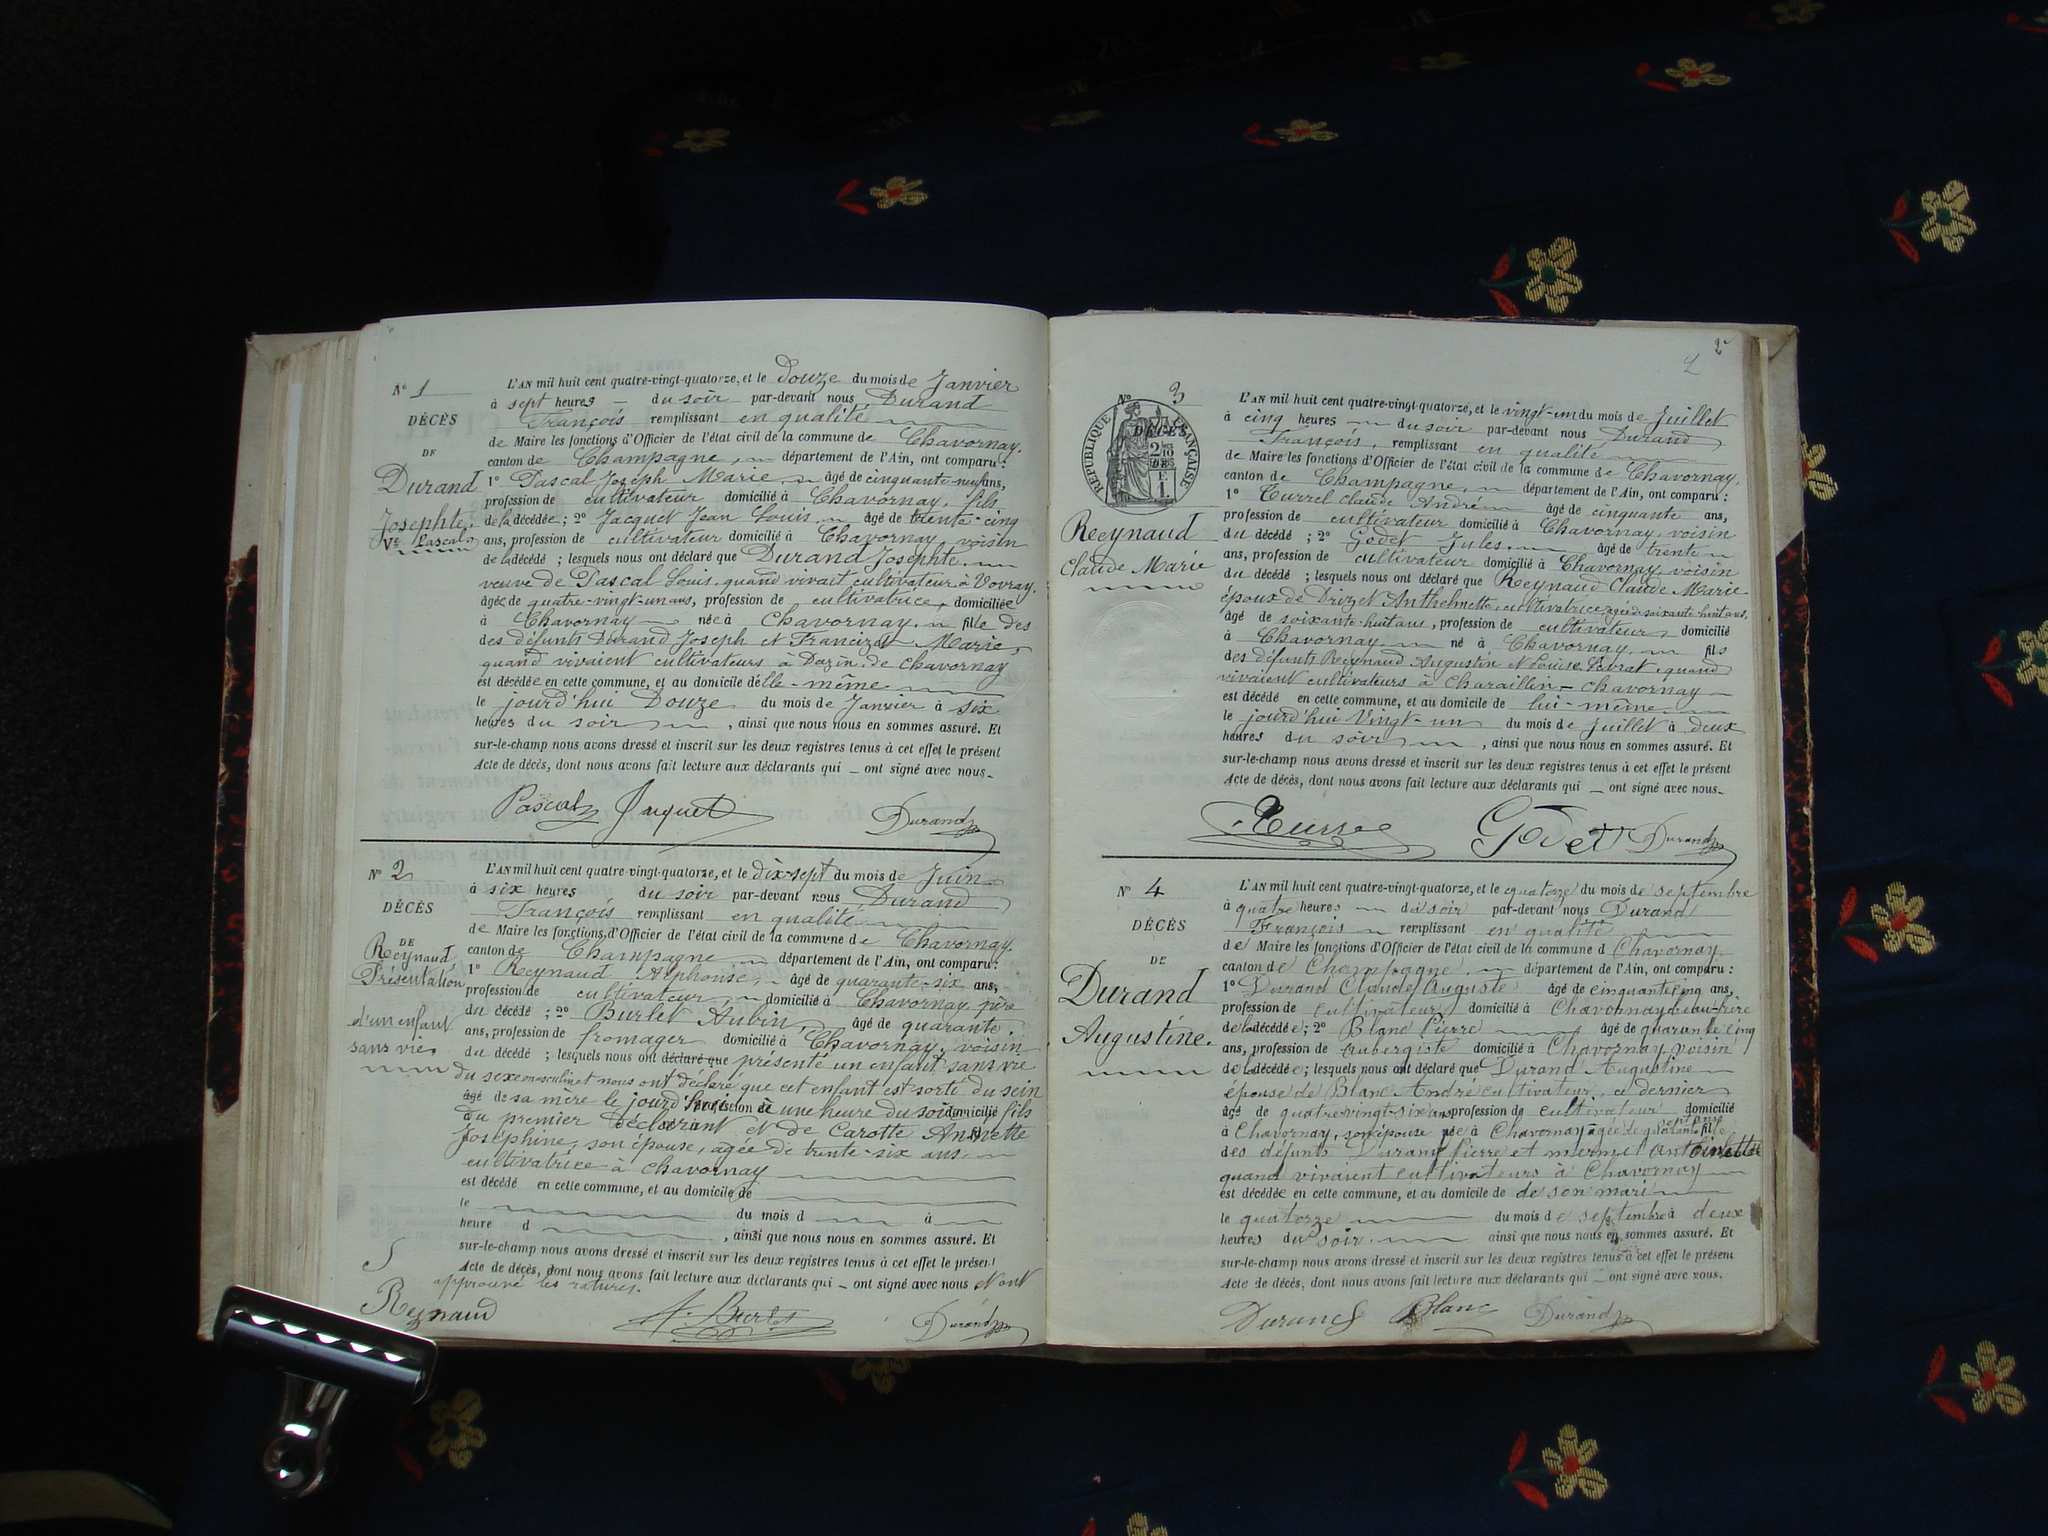 N° 1
DÉCÈS
DE
Durand
Josephte,
Ve Pascal
L'AN mil huit cent quatre-vingt-quatorze, et le douze du mois de Janvier
à sept heures du soir par-devant nous Durand
François remplissant en qualité
de Maire les fonctions d'Officier de l'état civil de la commune de Chavornay,
canton de Champagne, département de l'Ain, ont comparu :
1° Pascal Joseph Marie, âgé de cinquante-neuf ans,
profession de cultivateur domicilié à Chavornay, fils
de la décédée ; 2° Jacquet Jean Louis, âgé de trente-cinq
ans, profession de cultivateur domicilié à Chavornay, voisin
de la décédée ; lesquels nous ont déclaré que Durand Josephte,
veuve de Pascal Louis, quand vivait cultivateur à Vovray,
âgée de quatre-vingt-un ans, profession de cultivatrice, domiciliée
à Chavornay née à Chavornay, fille des
des défunts Durand Joseph et Marie,
quand vivaient cultivateurs à Dazin de Chavornay
est décédée en cette commune, et au domicile d'elle-même
le jourd'hui Douze du mois de Janvier à six
heures du soir, ainsi que nous nous en sommes assuré. Et
sur-le-champ nous avons dressé et inscrit sur les deux registres tenus à cet effet le présent
Acte de décès, dont nous avons fait lecture aux déclarants qui ont signé avec nous.
Pascal Jaquet Durand
N° 2
DÉCÈS
DE
Reynaud,
Présentation
d'un enfant
sans vie
L'AN mil huit cent quatre-vingt-quatorze, et le dix-sept du mois de Juin
à six heures du soir par-devant nous Durand
François remplissant en qualité
de Maire les fonctions d'Officier de l'état civil de la commune de Chavornay,
canton de Champagne département de l'Ain, ont comparu :
1° Reynaud Alphonse, âgé de quarante-six ans,
profession de cultivateur, domicilié à Chavornay, père
du décédé ; 2° Burlet Aubin, âgé de quarante
ans, profession de fromager domicilié à Chavornay, voisin
du décédé ; lesquels nous ont déclaré que présenté un enfant sans vie
du sexe masculin et nous ont déclaré que cet enfant est sorti du sein
âgé de sa mère le jourd'hui profession de à une heure du soir domicilié fils
du premier déclarant et de Carotte Annette
Joséphine, son épouse, agée de trente-six ans
cultivatrice à Chavornay
est décédé en cette commune, et au domicile de
le du mois d à
heure d, ainsi que nous nous en sommes assuré. Et
sur-le-champ nous avons dressé et inscrit sur les deux registres tenus à cet effet le présent
Acte de décès, dont nous avons fait lecture aux déclarants qui ont signé avec nous et ont
approuvé les ratures.
Reynaud A. Burlet Durand
2
2
N° 3
DÉCÈS
RÉPUBLIQUE FRANÇAISE
Reeynaud
Claude Marie
L'AN mil huit cent quatre-vingt-quatorze, et le vingt-un du mois de Juillet
à cinq heures du soir par-devant nous Durand
François, remplissant en qualité
de Maire les fonctions d'Officier de l'état civil de la commune de Chavornay,
canton de Champagne, département de l'Ain, ont comparu :
1° Turrel Claude André âgé de cinquante ans,
profession de cultivateur domicilié à Chavornay, voisin
du décédé ; 2° Godet Jules, âgé de trente
ans, profession de cultivateur domicilié à Chavornay, voisin
du décédé ; lesquels nous ont déclaré que Reeynaud Claude Marie
époux de Drizet Anthelmette, cultivatrice agée de soixante huit ans,
âgé de soixante-huit ans, profession de cultivateur domicilié
à Chavornay né à Chavornay, fils
des défunts Reeynaud Augustin et Louise quand
vivaient cultivateurs à Charaillin-Chavornay
est décédé en cette commune, et au domicile de lui-même
le jourd'hui Vingt-un du mois de Juillet à deux
heures du soir, ainsi que nous nous en sommes assuré. Et
sur-le-champ nous avons dressé et inscrit sur les deux registres tenus à cet effet le présent
Acte de décès, dont nous avons fait lecture aux déclarants qui ont signé avec nous.
Godet Durand
N° 4
DÉCÈS
DE
Durand
Augustine.
L'AN mil huit cent quatre-vingt-quatorze, et le quatorze du mois de septembre
à quatre heures du soir par-devant nous Durand
François remplissant en qualité
de Maire les fonctions d'Officier de l'état civil de la commune d Chavornay
canton de Champagne département de l'Ain, ont comparu :
1° Durand Claude Auguste âgé de cinquante cinq ans,
profession de cultivateur domicilié à Chavornay beau-frère
de la décédée ; 2° Blanc Pierre âgé de quarante cinq
ans, profession de aubergiste domicilié à Chavornay voisin
de la décédée ; lesquels nous ont déclaré que Durand Augustine
épouse de Blanc André cultivateur, ce dernier
âgé de quatre-vingt-six ans profession de cultivateur domicilié
à Chavornay, son épouse née à Chavornay agée de quarante fille
des défunts Durand Pierre et mermet antoinette
quand vivaient cultivateurs à Chavornay
est décédée en cette commune, et au domicile de de son mari
le quatorze du mois de septembre à deux
heures du soir ainsi que nous nous en sommes assuré. Et
sur-le-champ nous avons dressé et inscrit sur les deux registres tenus à cet effet le présent
Acte de décès, dont nous avons fait lecture aux déclarants qui ont signé avec nous.
Durand Blanc Durand